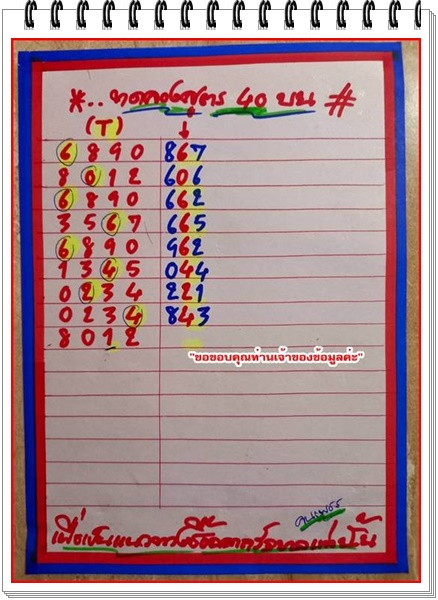 *.. ทดลองสูตร 40 บน #
(T) ↓
6 8 9 0 867
8 0 1 2 606
6 8 9 0 662
3 5 6 7 665
6 8 9 0 962
1 3 4 5 044
0 2 3 4 221
0 2 3 4 843
8 0 1 2
"ขอขอบคุณท่านเจ้าของข้อมูลค่ะ"
เพื่อเป็นแนวทาง